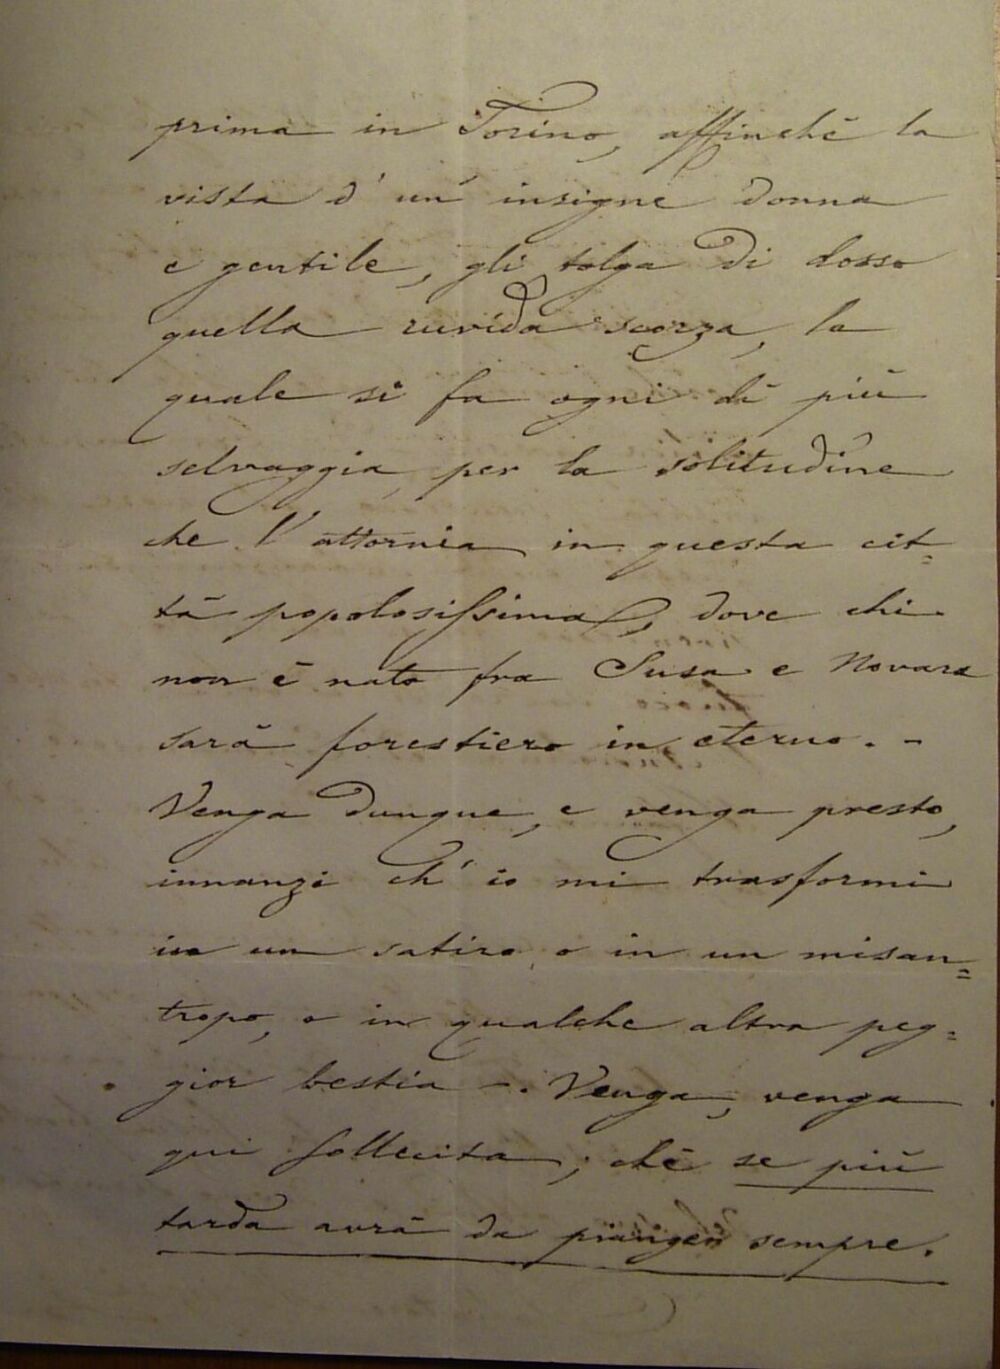 prima in Torino, affinchè la
vista d' un' insigne donna
e gentile, gli tolga di dosso
quella ruvida scorza, la
quale si fa ogni dì più
selvaggia, per la solitudine
che l' attornia in questa cit=
tà popolosissima, dove chi
non è nato fra Susa e Novara
sarà forestiero in eterno. -
Venga dunque, e venga presto,
innanzi ch' io mi trasformi
in un satiro, o in un misan=
tropo, o in qualche altra peg=
gior bestia -. Venga, venga
qui sollecita; chè se più
tarda avrà da pianger sempre.